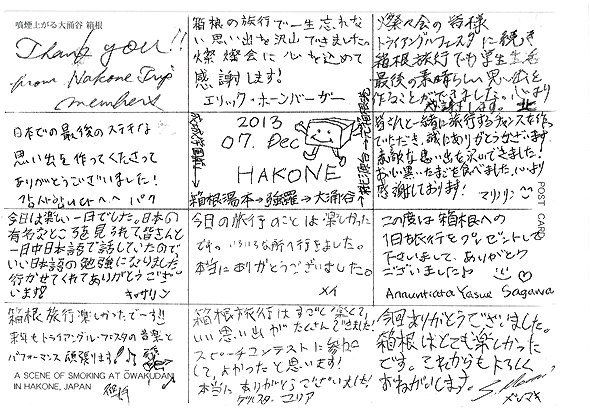 噴煙上がる大涌谷 箱根
Thank you!!
from Hakone Trip
members
箱根の旅行で一生忘れな
い思い出を沢山できました。
燦燦会に心を込めて
感謝します!
エリック・ホーンバーガー
燦々会の皆様
トライアングルフェスタに続き
箱根旅行でも学生生活
最後の素晴らしい思い出を
作ることができました。心より
感謝します。
日本での最後のステキな
思い出を作ってくださって
ありがとうございました!
감사합니다^^ パク
2013
07. Dec
HAKONE
箱根湯本→強羅→大涌谷
皆さんと一緒に旅行するチャンスを作って
いただき、誠にありがとうございます。
素敵な思い出を沢いできました!
おいしい黒いたまごを食べました。心より
感謝しております!
マリリン
POST CARD
今日は楽しい一日でした。日本の
有名なところを見られて皆さんと
一日中日本語で話していたので、
いい日本語の勉強になりました。
行かせてくれてありがとうござ
います。
キャサリン
今日の旅行のことは楽しかった
です。いろいろな所へ行きました。
本当にありがとうございました。
メイ
この度は箱根への
1日旅行をプレゼントして
下さいまして、ありがとう
ございました♪
Annunticata Yasue Sagawa
箱根旅行楽しかったでーす!!
来年もトライアングル・フェスタの音楽と
パフォーマンス頑張ります!
A SCENE OF SMOKING AT ŌWAKUDANI
IN HAKONE, JAPAN
箱根旅行はすごい楽しくて、
いい思い出がたくさんできました!
スピーチコンテストに参加
して、よかったと思います!
本当にありがとうございました!
ユリア
今回ありがとうございました。
箱根はとても楽しかった
です。これからもよろしく
おねがいします。
メンマキ